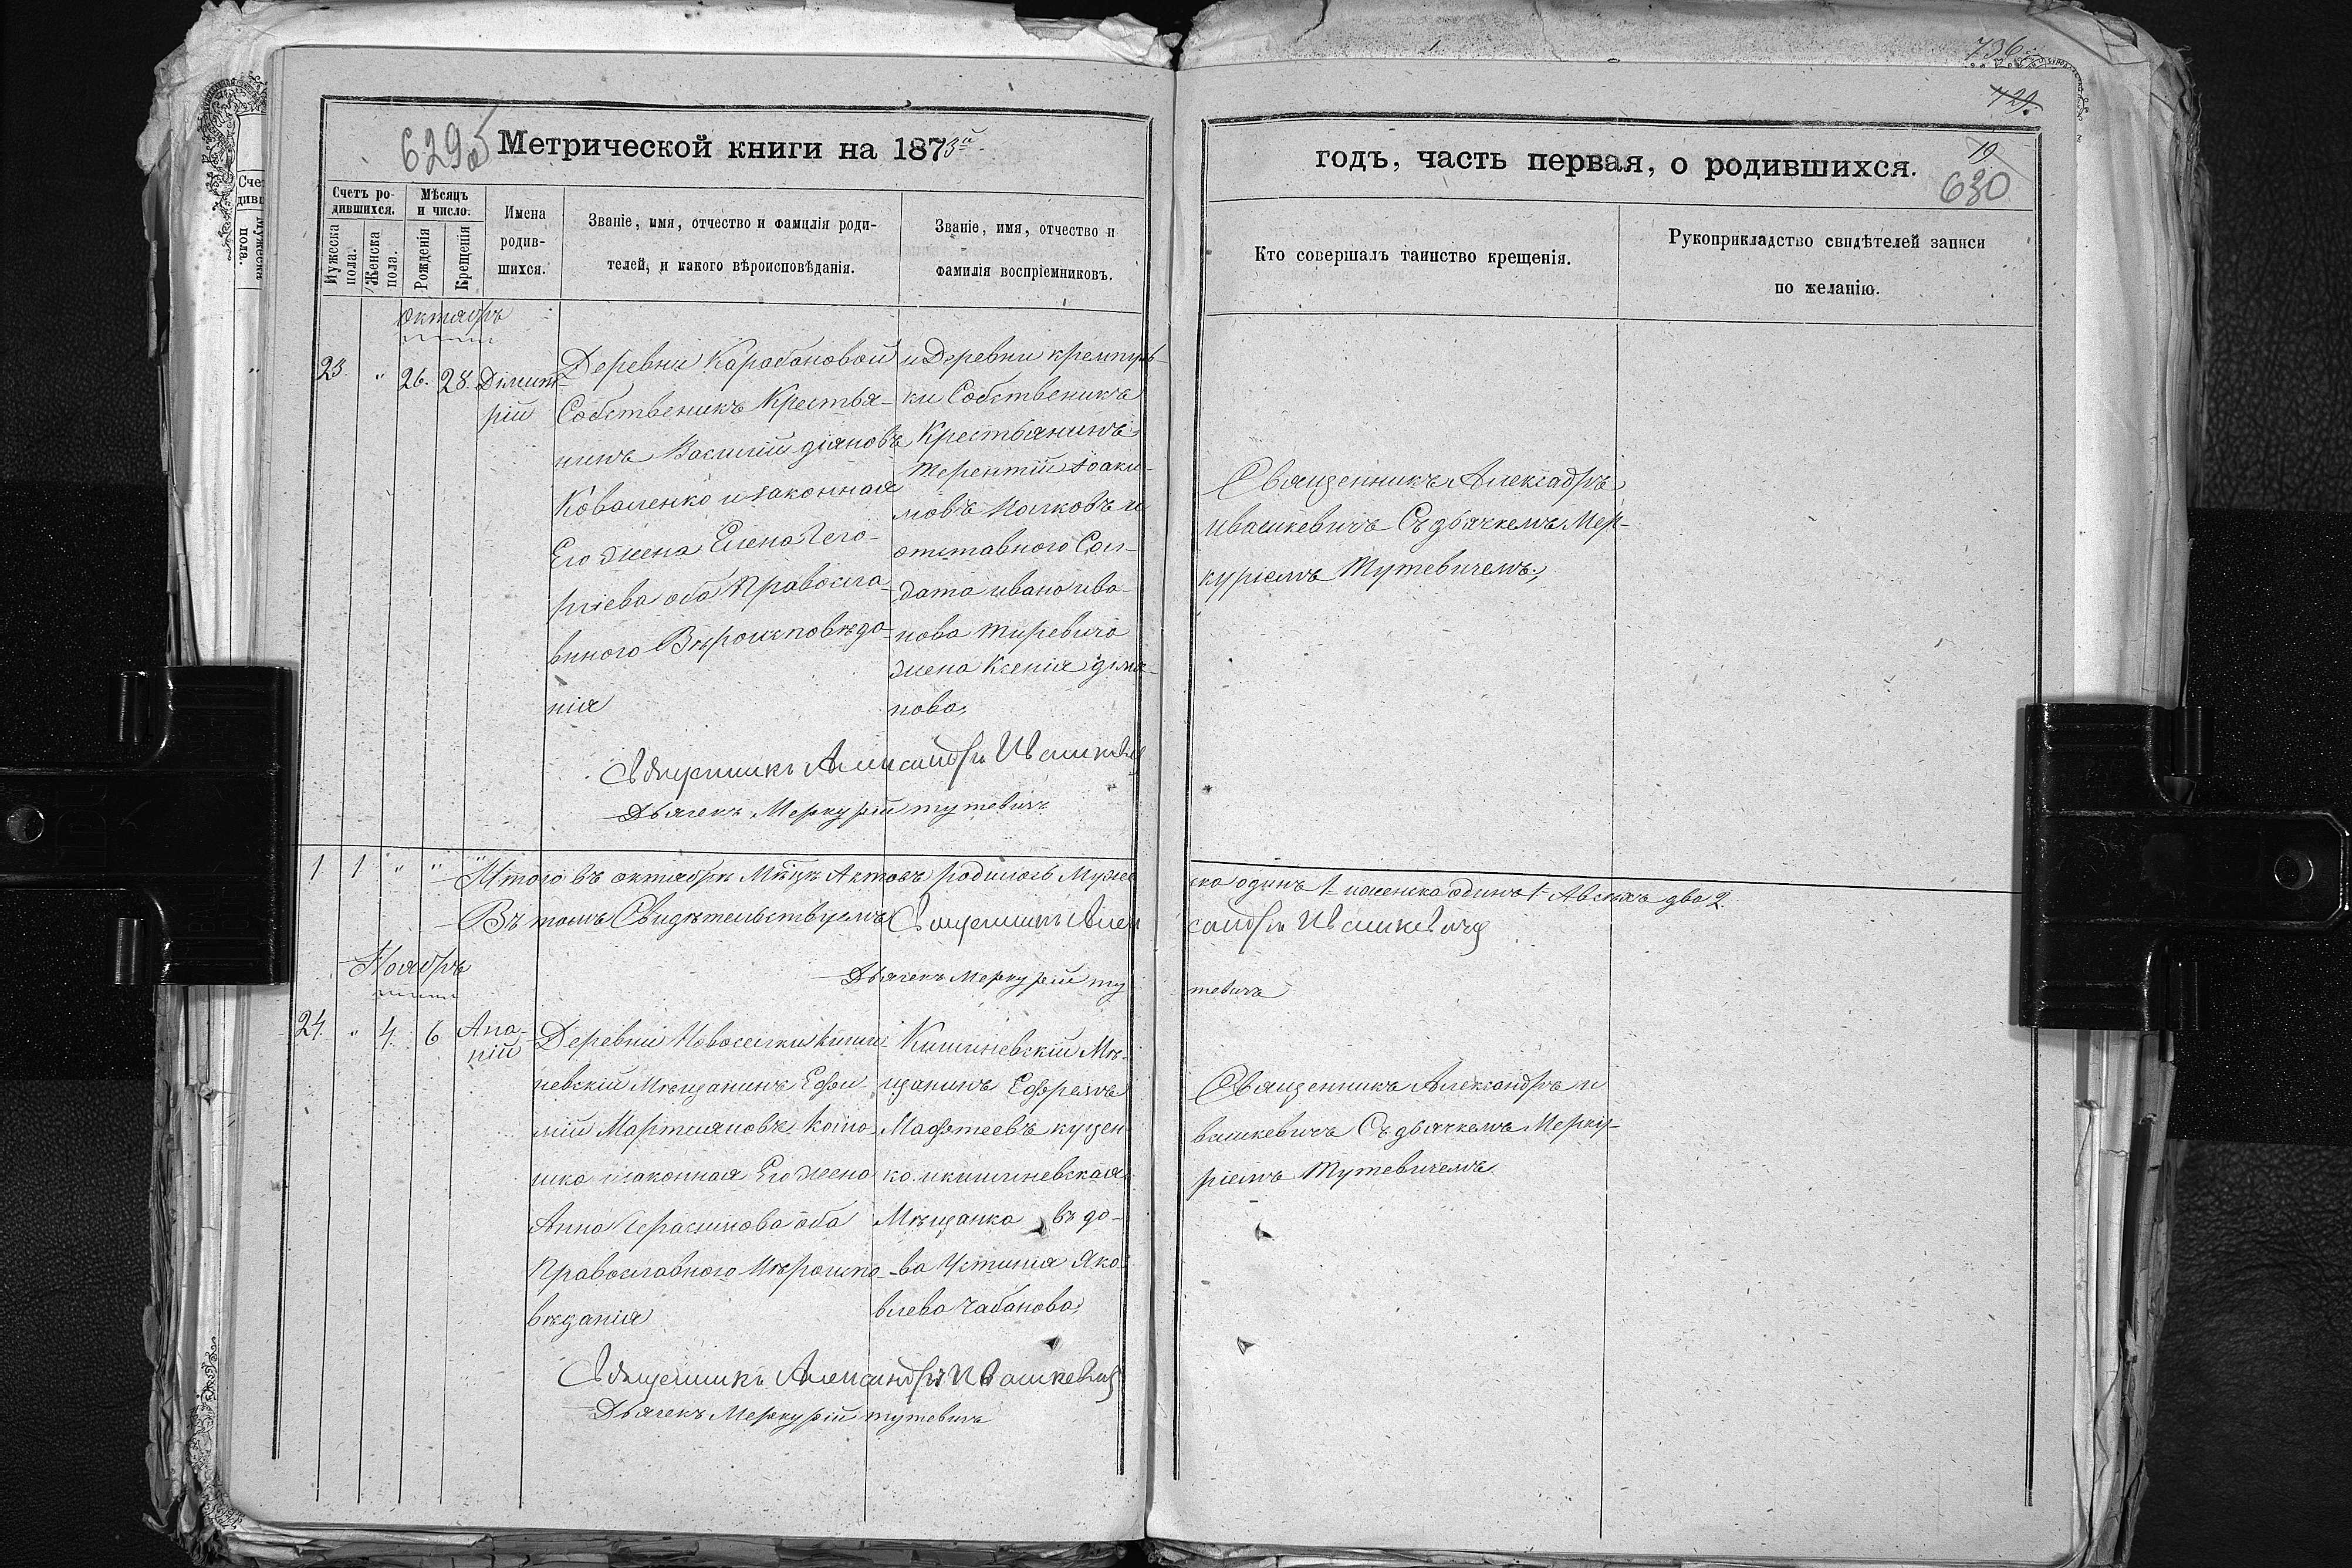 736.
129.
629 об
Метрической книги на 1873й
годъ, часть первая, о родившихся.
19
630
Счетъ ро-
дившихся.
Мужеска пола.
Женска пола.
Мѣсяцъ
и число.
Рожденія
Крещенія
Имена
родив-
шихся.
Званіе, имя, отчество и фамилія роди-
телей, и какого вѣроисповѣданія.
Званіе, имя, отчество и
фамилія воспріемниковъ.
Кто совершалъ таинство крещенія.
Рукоприкладство свидѣтелей записи
по желанію.
Октябрь
23. " 26. 28. Димит-
рій
Деревни Карабановой
Собственикъ Крестья-
нинъ Василій
Коваленко и законная
Его жена Елена
оба Правосла-
вного Вѣроисповѣда-
нія
и Деревни
ки Собственикъ
Крестьянинъ
Терентій Іоаки-
мовъ и
отставного Сол-
дата ивана ива-
нова
жена Ксенія
нова,
Священникъ Алексадръ
ивашкевичъ Съ дьячкемъ Мер-
куріемъ Тутевичемъ,
Священникъ Александръ Ивашкевичъ
Дьячекъ Меркурій тутевичъ
1 1 " " " Итого въ октябрѣ Мѣцѣ родилось Мужес
ска одинъ 1 женска одинъ 1 Авсѣхъ два 2.
Въ томъ Свидѣтельствуемъ Священникъ Алек
сандръ Ивашкевичъ
Дьячекъ Меркурій ту
тевичъ
Ноябрь
24. " 4. 6 Ана-
ній
Деревни Новоселки Киши-
невскій Мѣщанинъ Ефи-
мій Мартиановъ
законная Его жена
Анна Герасимова оба
Православного Вѣроиспо-
вѣданія
Кишиневскій Мѣ-
щанинъ Ефремъ
Мафтеевъ куцен
ко. икишиневская
Мѣщанка вдо-
ва Устинія Яко-
влева Чабанова,
Священникъ Александръ и
вашкевичъ Съ дьячкемъ Мерку-
ріемъ Тутевичемъ
Священникъ Александръ Ивашкевичъ
Дьячекъ Меркурій тутевичъ